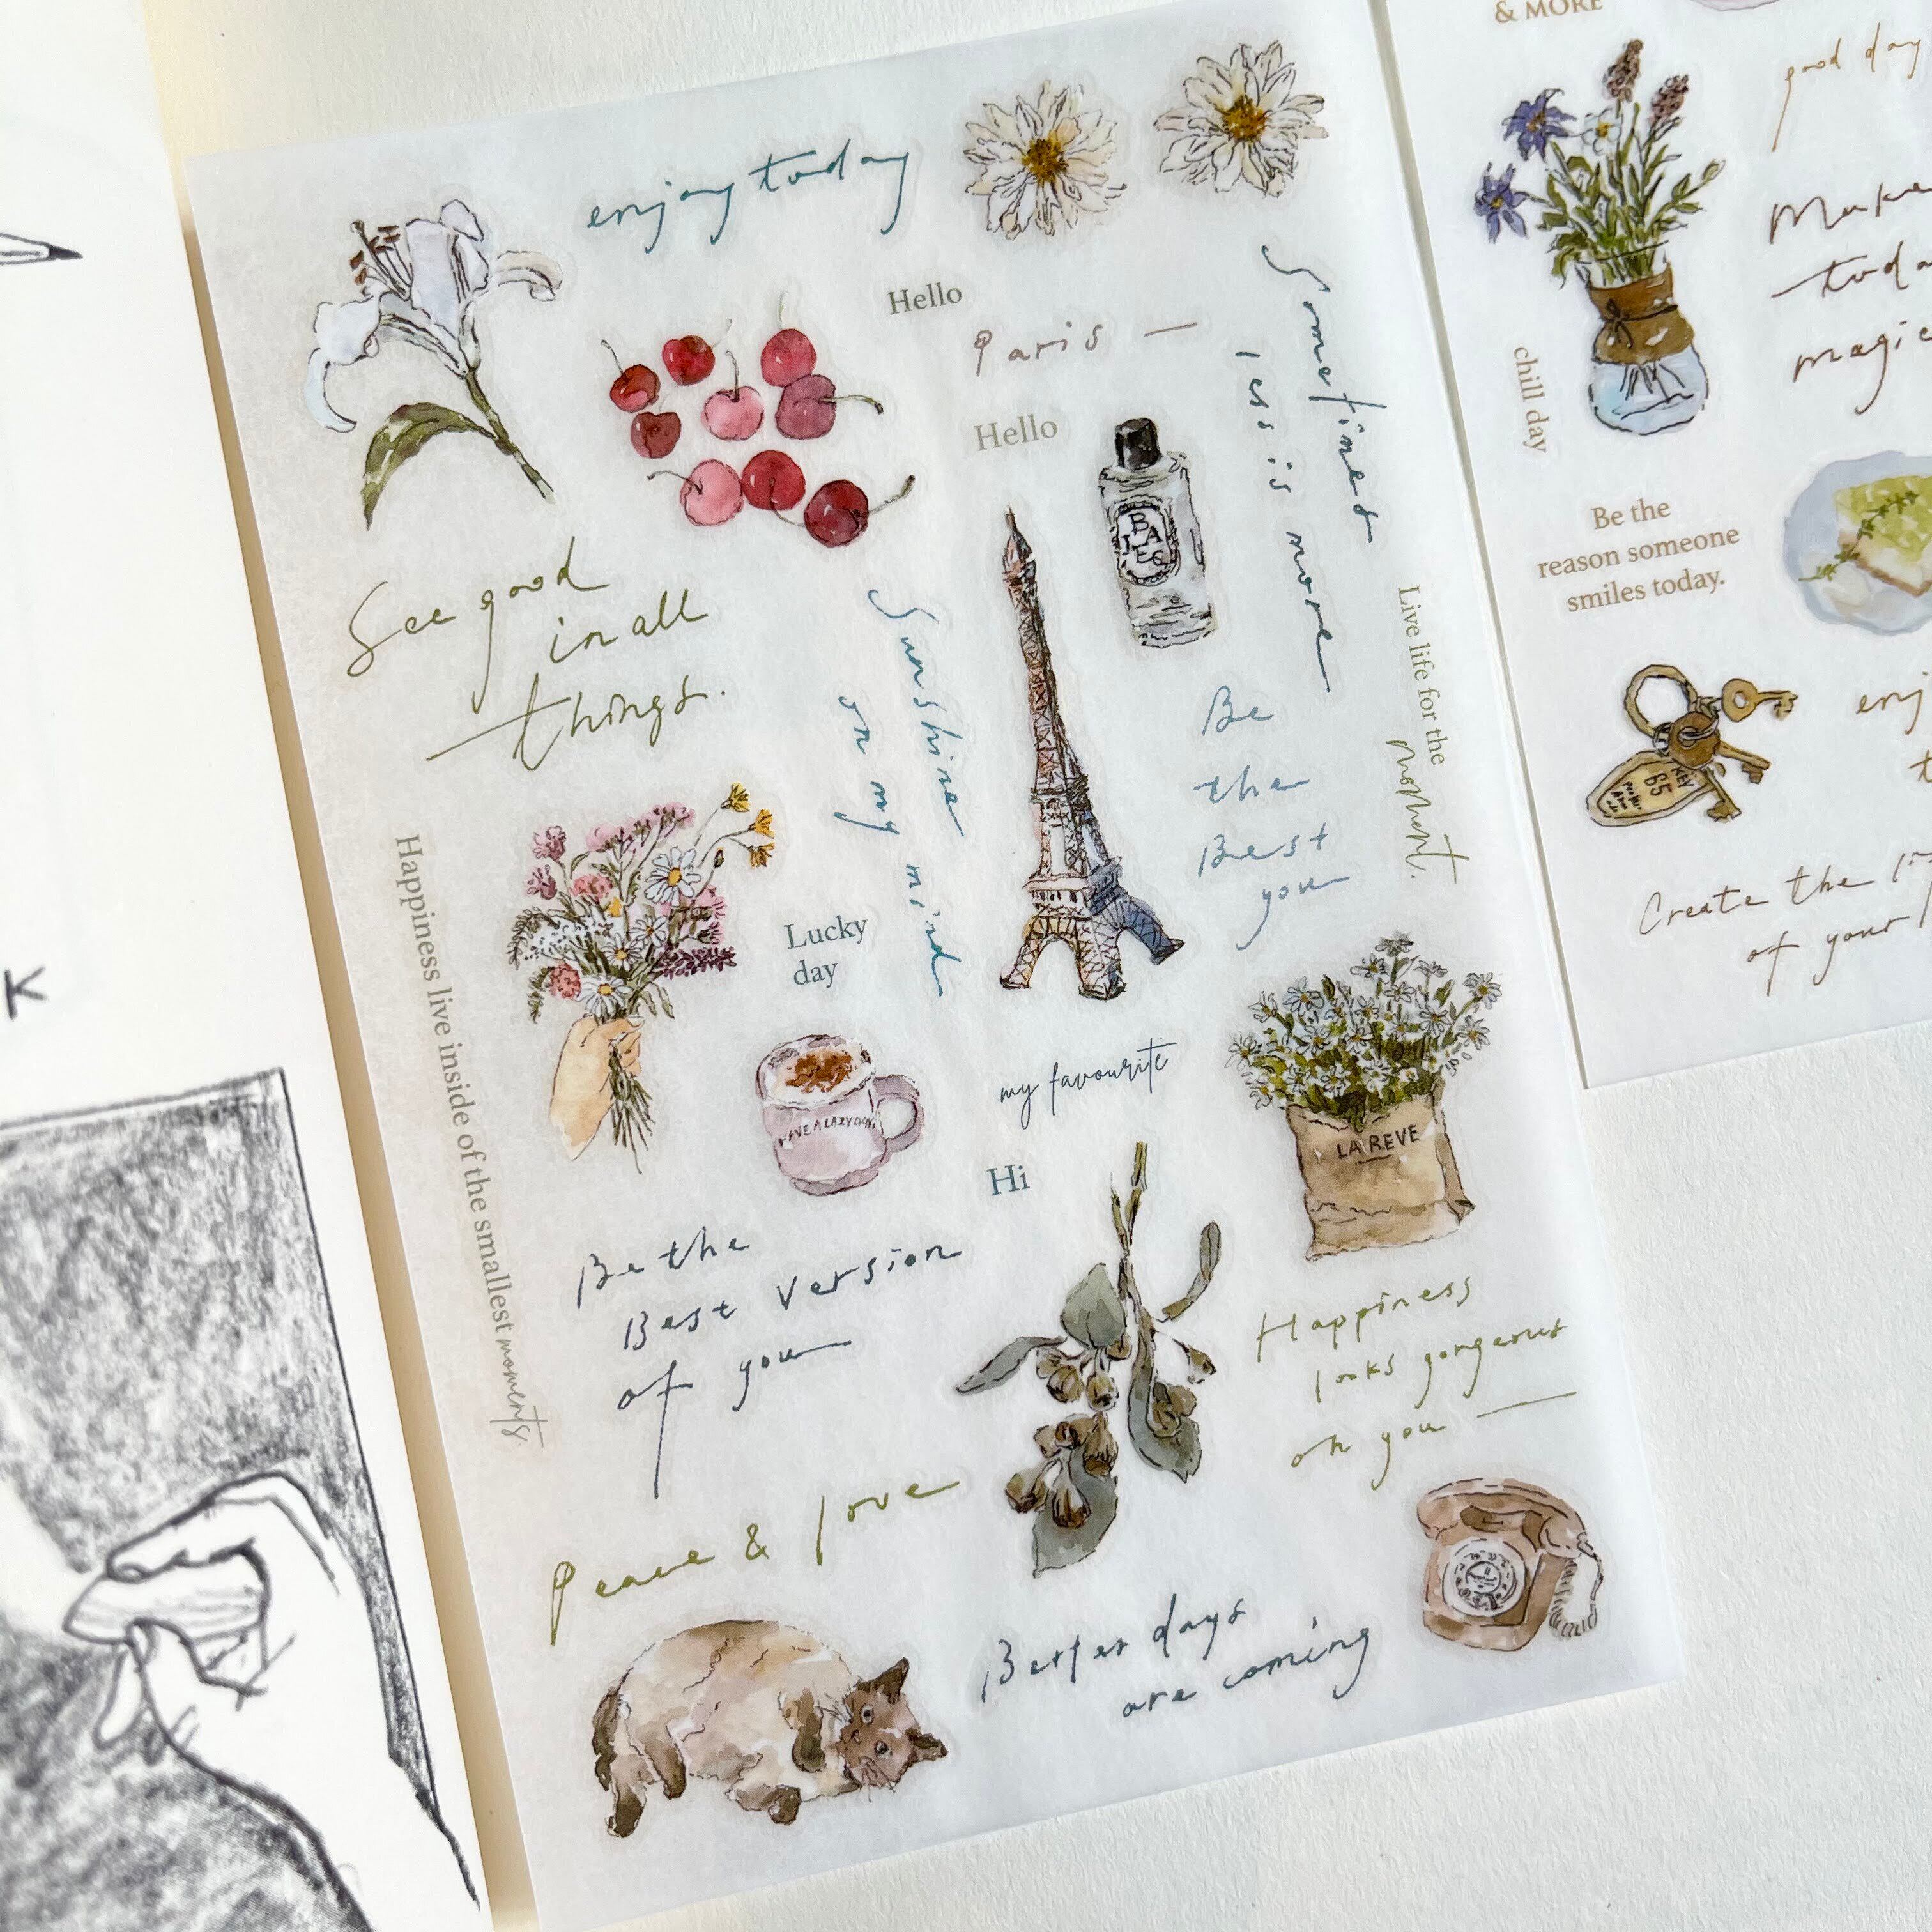 K
enjoy today
Hello
Paris —
Hello
Sometimes
less is more
BAIES
See good
in all
things.
Sunshine
on my mind
Be
the
Best
you
Live life for the
moment.
Happiness live inside of the smallest moments.
Lucky
day
HAVE A LAZY DAY
my favourite
Hi
LA REVE
Be the
Best Version
of you
Happiness
looks gorgeous
on you —
Peace & love
Better days
are coming
& MORE
good day
Make
toda
magic
chill day
Be the
reason someone
smiles today.
KEY
65
enj
t
Create the li
of your l